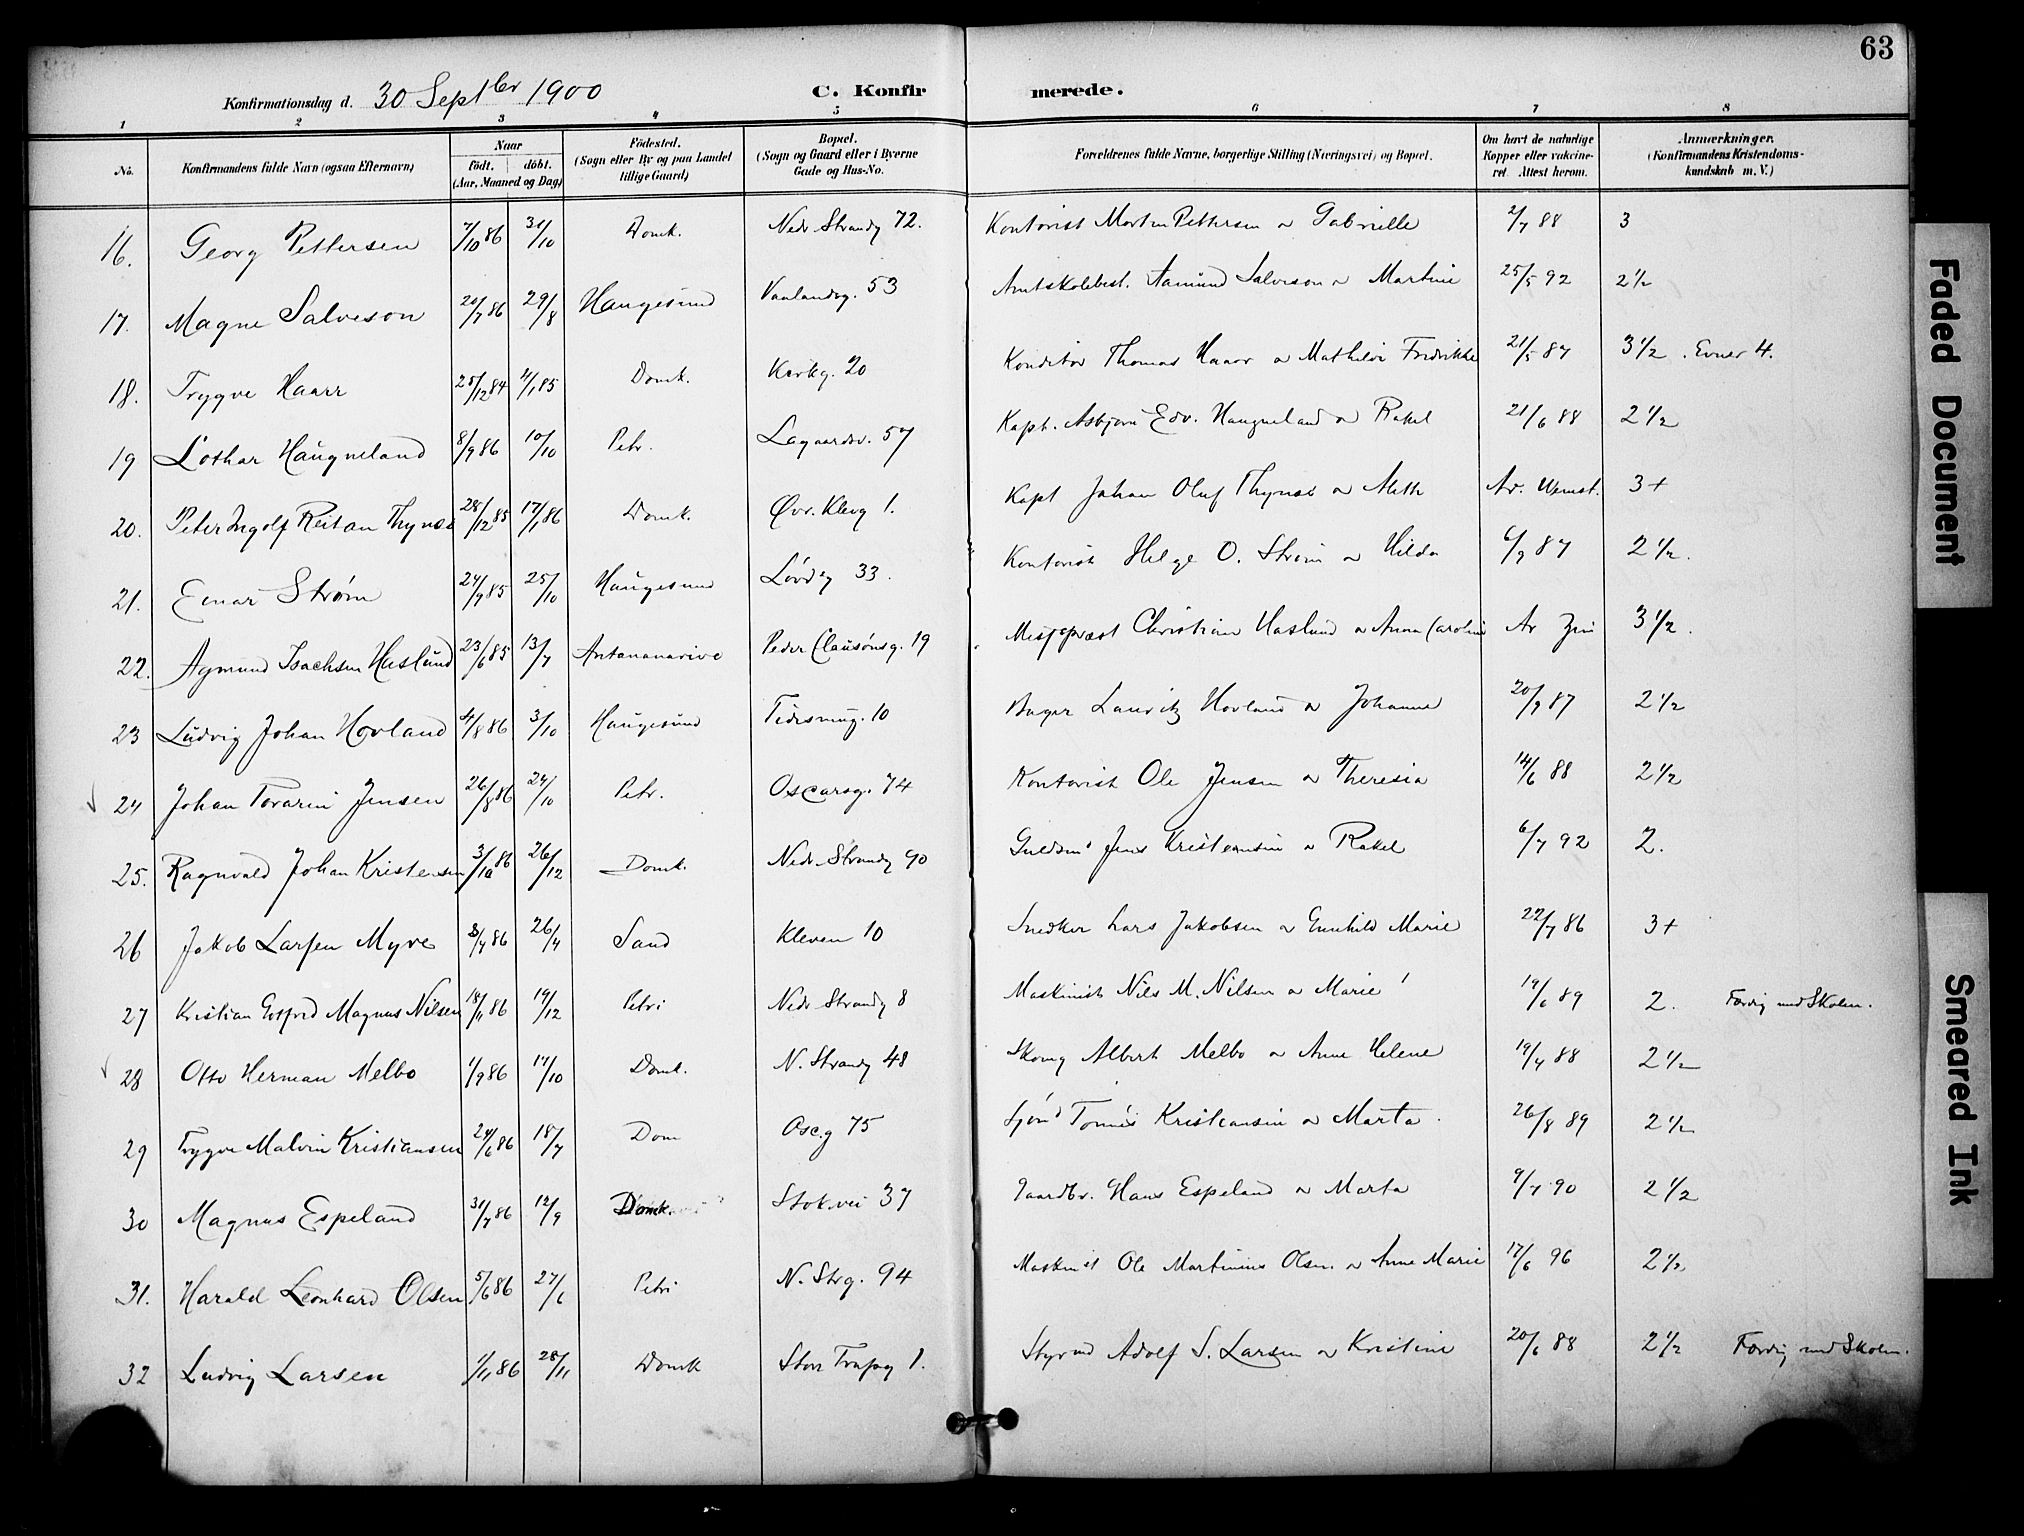 63
Konfirmationsdag d. 30 Septbr 1900 C. Konfirmerede.
1 2 3 4 5 6 7 8
No. Konfirmandens fulde Navn (ogsaa Efternavn) Naar födt. döbt. (Aar, Maaned og Dag) Födested. (Sogn eller By og paa Landet tillige Gaard) Bopæl. (Sogn og Gaard eller i Byerne Gade og Hus-No. Forældrenes fulde Navne, borgerlige Stilling (Næringsvei) og Bopæl. Om havt de naturlige Kopper eller vakcineret. Attest herom. Anmærkninger. (Konfirmandens Kristendomskundskab m. V.)
16. Georg Pettersen 7/10 86 31/10 Domk. Nedr. Strandg 72. Kontorist Morten Pettersen o Gabrielle 2/7 88 3
17. Magne Salveson 20/7 86 29/8 Haugesund Vaulandsg. 53 Amtskolebest. Aamund Salveson o Martine 25/5 92 2½
18. Trygve Haarr 25/12 84 4/1 85 Domk. Kirkg. 20 Konditor Thomas Haarr o Mathilde Fredrikke 21/5 87 3½. Evner 4.
19 Lothar Haugneland 8/9 86 10/10 Petr. Lagaardsv. 57 Kapt. Asbjørn Edv. Haugneland o Rakel 21/6 88 2½
20. Peter Ingolf Reitan Thynæs 28/12 85 17/1 86 Domk. Øvr. Klevg 1. Kapt Johan Oluf Thynæs o Aleth Ar. 3+
21. Einar Strøm 24/9 85 25/10 Haugesund Løvdg 33. Kontorist Helge O. Strøm o Hilda 6/9 87 2½.
22. Agmund Isachsen Haslund 23/6 85 13/7 Antananarivo Peder Clausønsg. 19 Misspræst Christian Haslund o Anna Caroline Ar 3½.
23 Ludvig Johan Hovland 4/8 86 3/10 Haugesund 10 Bager Lauritz Hovland o Johanne 20/9 87 2½
24 Johan Tovarin Jensen 26/8 86 24/10 Petr. Oscarsg. 74 Kontorist Ole Jensen o Theresia 14/6 88 2½
25. Ragnvald Johan Kristensen 3/10 86 26/12 Domk. Nedr. Strandg 90 Guldsm Jens Kristensen o Rakel 6/7 92 2.
26 Jakob Larsen Myre 3/4 86 26/4 Sand Kleven 10 Snedker Lars Jakobsen o Gunhild Marie 22/7 86 3+
27 Kristian Gotfred Magnus Nilsen 18/11 86 19/12 Petri Nedr Strandg 8 Maskinist Nils M. Nilsen o Marie 19/6 89 2. Færdig med Skolen.
28 Otto Herman Melbo 1/9 86 17/10 Domk. N. Strandg 48 Skomg Albert Melbo o Anne Helene 19/4 88 2½
29 Trygve Malvin Kristiansen 24/6 86 18/7 Dom Osc.g 75 Sjømd Tønnes Kristiansen o Marta. 26/8 89 2½
30 Magnus Espeland 31/7 86 12/9 Domk. Stokvei 37 Gaardbr. Hans Espeland o Marta 9/7 90 2½
31. Harald Leonhard Olsen 5/6 86 27/6 Petri N. Strg. 94 Maskinist Ole Martinius Olsen o Anne Marie 17/6 96 2½
32 Ludvig Larsen 1/11 86 28/11 Domk Store Trapg 1. Styrmd Adolf S. Larsen o Kristine 20/6 88 2½ Færdig med Skolen.
Faded Document
Smeared Ink